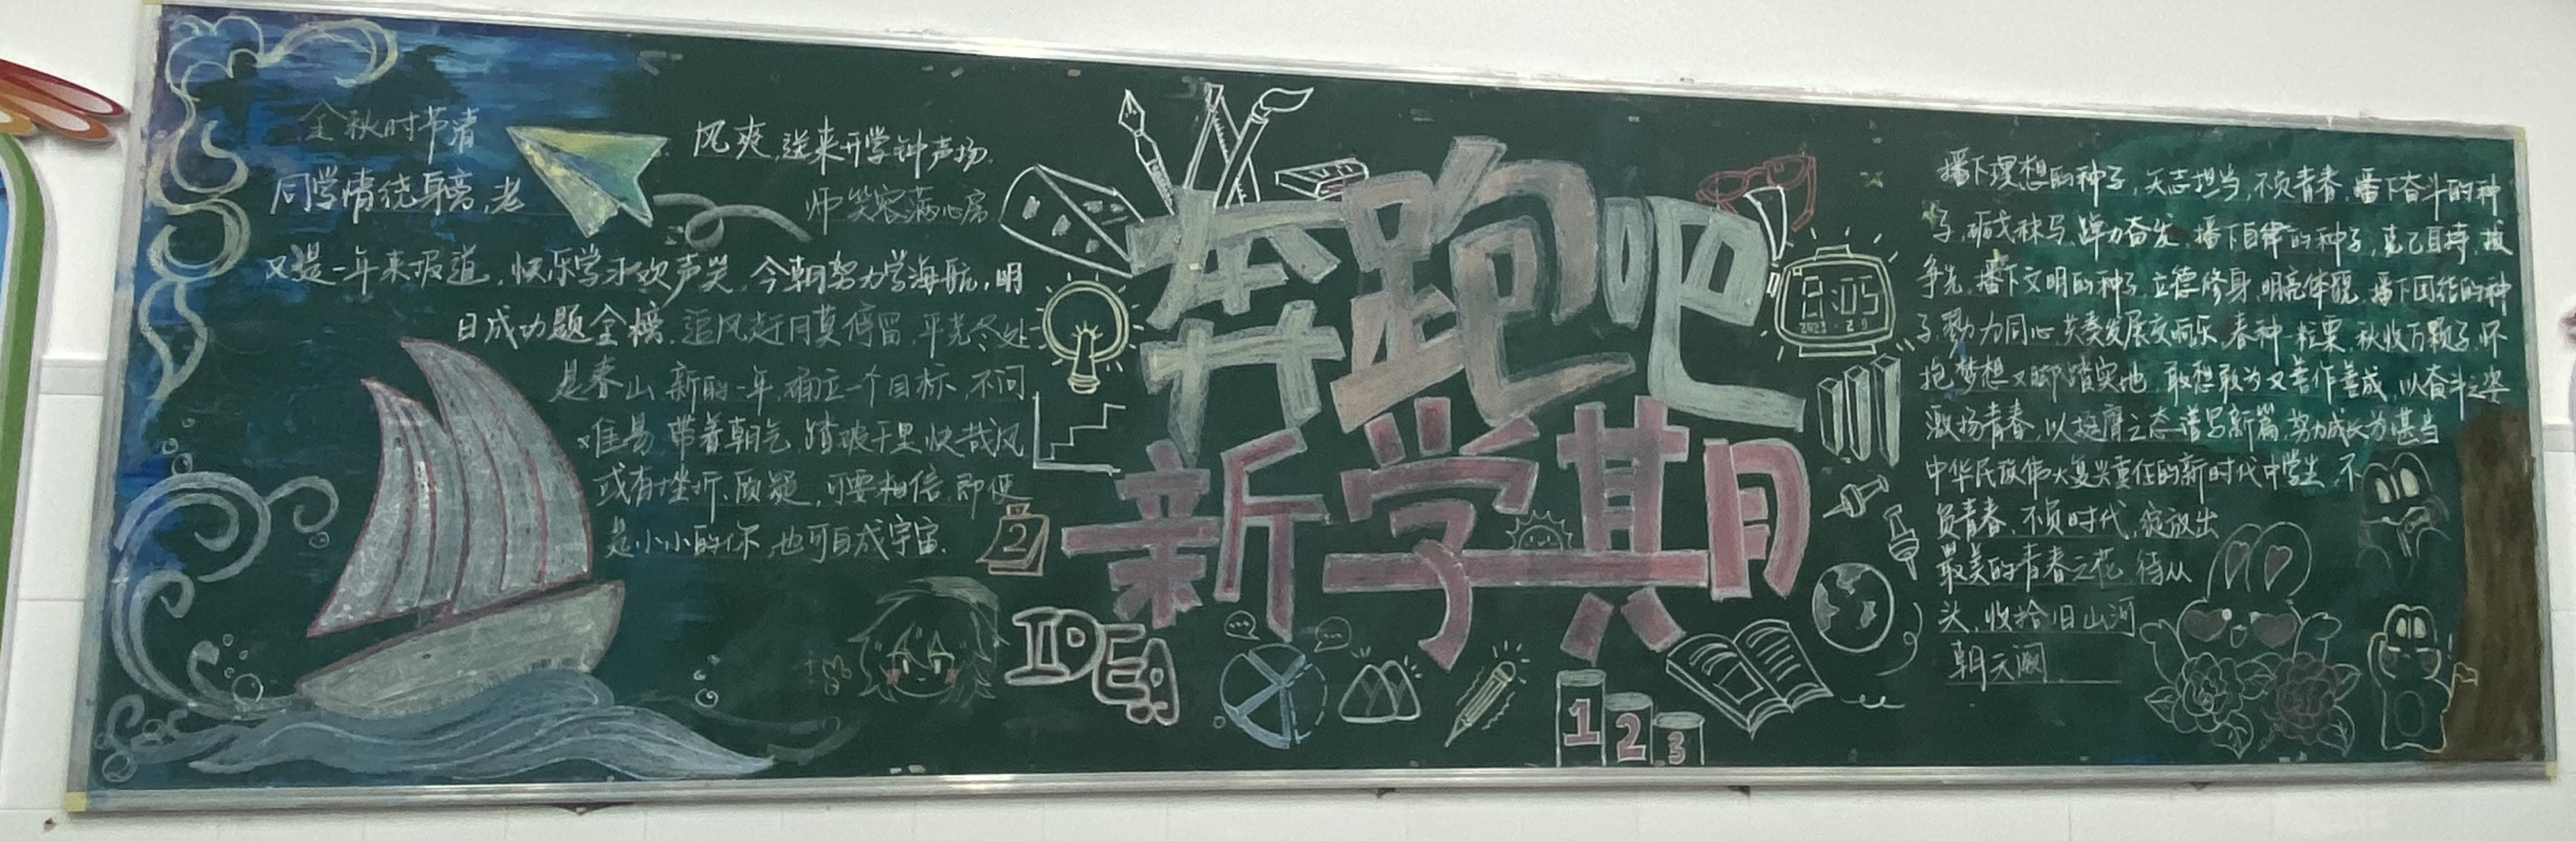 金秋时节清
风爽,送来开学钟声扬.
同学情绕身旁,老
师笑容满心房
又是一年来报道,快乐学习欢声笑.今朝努力学海航,明
日成功题金榜.追风赶月莫停留,平芜尽处
是春山 新的一年,确立一个目标、不问
难易 带着朝气,踏破千里快哉风
或有挫折、质疑,可要相信,即使
是小小的你,也可自成宇宙.
奔跑吧
新学期
8:05
2023.2.9
2
IDEA
1 2 3
播下理想的种子,矢志担当,不负青春.播下奋斗的种
子,砺戈秣马,踔力奋发.播下自律的种子,克己自持,
争先.播下文明的种子,立德修身,明亮体貌.播下团结的种
子,勠力同心,共奏发展交响乐.春种一粒粟,秋收万颗子.怀
抱梦想又脚踏实地,敢想敢为又善作善成,以奋斗之姿
激扬青春,以挺膺之态谱写新篇,努力成长为堪当
中华民族伟大复兴重任的新时代中学生,不
负青春,不负时代,绽放出
最美的青春之花.待从
头,收拾旧山河
朝天阙